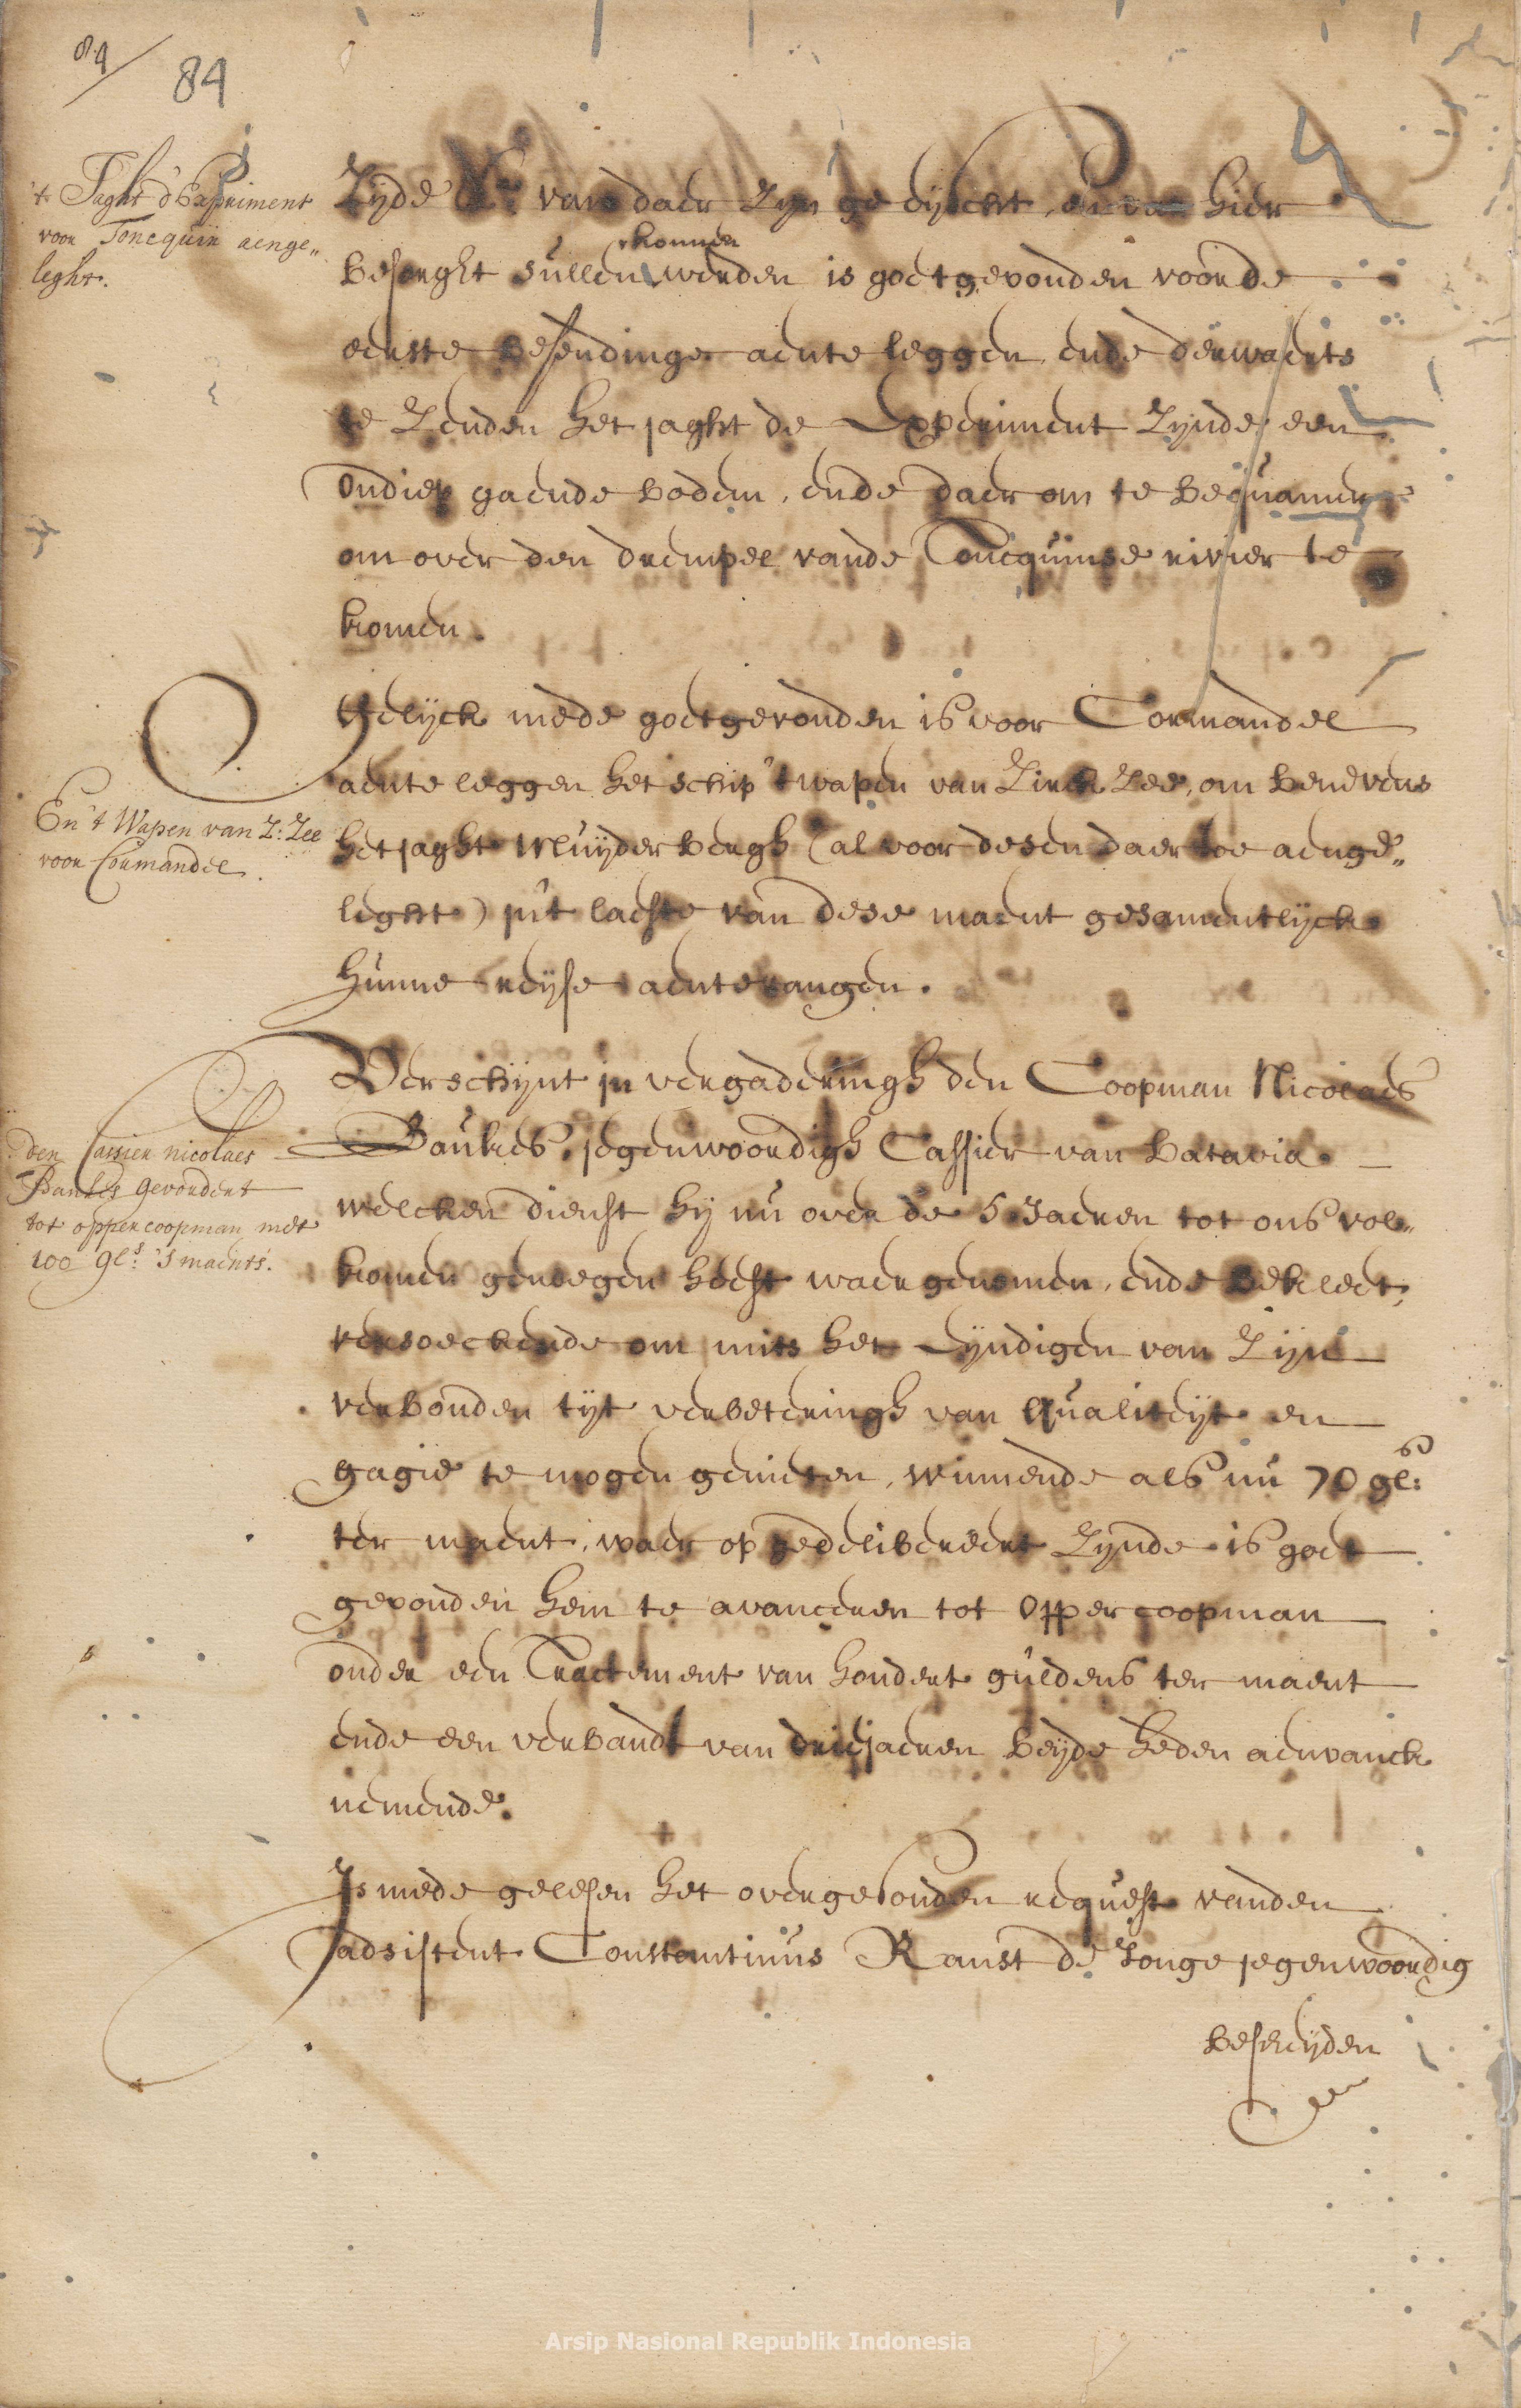 84
84
't Jaght d'Experiment
voor Toncquin aenge„
leght.
Zijde &.a van daer zijn ge eijscht, en van hier
konnen
besorght sullen werden is goetgevonden voor de
eerste besendinge aente leggen ende derwaerts
te zenden het jaght de Experiment zijnde een
ondiep gaende bodem, ende daerom te bequamer
om over den drempel vande Toncquinse rivier te
komen.
Gelijck mede goetgevonden is voor Cormandel
aente leggen het schip 't wapen van Zirck Zee, om benevens
het jaght Muijderbergh (al voor desen daer toe aenge„
leght) p.r ult laeste van dese maent gesamentlijck
hunne reijse aentevangen.
En 't Wapen van Z: Zee
voor Cormandel.
Verschijnt in vergaderingh den Coopman Nicolaes
Baukes, jegenwoordigh Cassier van Batavia
welcken dienst hij nu over de 5 Jaeren tot ons vol„
komen genoegen heeft waergenomen, ende bekleet,
versoeckende om mits het eijndigen van zijn
verbonden tijt verbeteringh van qualiteijt en
gagie te mogen genieten, winnende als nu 70 gl:s
ter maent, waer op gedelibereert zijnde is goet
gevonden hem te avanceren tot opper coopman
onder een Tractement van hondert guldens ter maent
ende een verbandt van drie jaeren beijde heden aenvanck
nemende.
den Cassier nicolaes
Baukes gevordert
tot opper coopman met
100 gl:s 's maents.
Is mede gelesen het overgesonden request vanden
adsistent Constantinus Ranst de Jonge jegenwoordig
bescheijden
Arsip Nasional Republik Indonesia